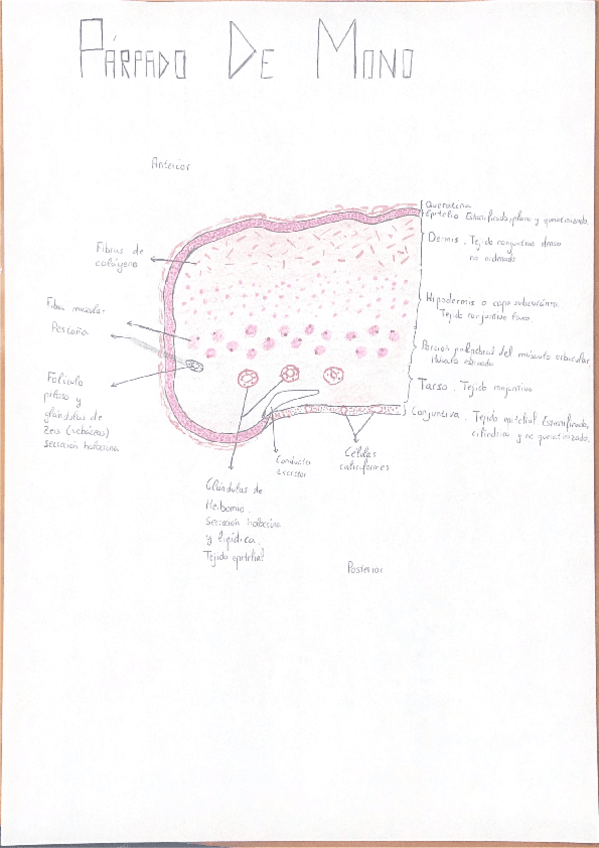 PÁRPADO DE MONO
Anterior
Queratina
Epitelio Estratificado, plano y queratinizado.
Dermis. Tejido conjuntivo denso
no ordenado
Fibras de
colágeno
Hipodermis o capa subcutánea.
Tejido conjuntivo laxo.
Fibra muscular
Pestaña
Porción palpebral del músculo orbicular.
Músculo estriado
Folículo
piloso y
glándulas de
Zeis (sebáceas)
secreción holocrina
Tarso. Tejido conjuntivo
Conjuntiva. Tejido epitelial Estratificado,
cilíndrico y no queratinizado.
Conducto
excretor
Células
caliciformes
Glándulas de
Meibomio.
Secreción holocrina
y lipídica.
Tejido epitelial
Posterior